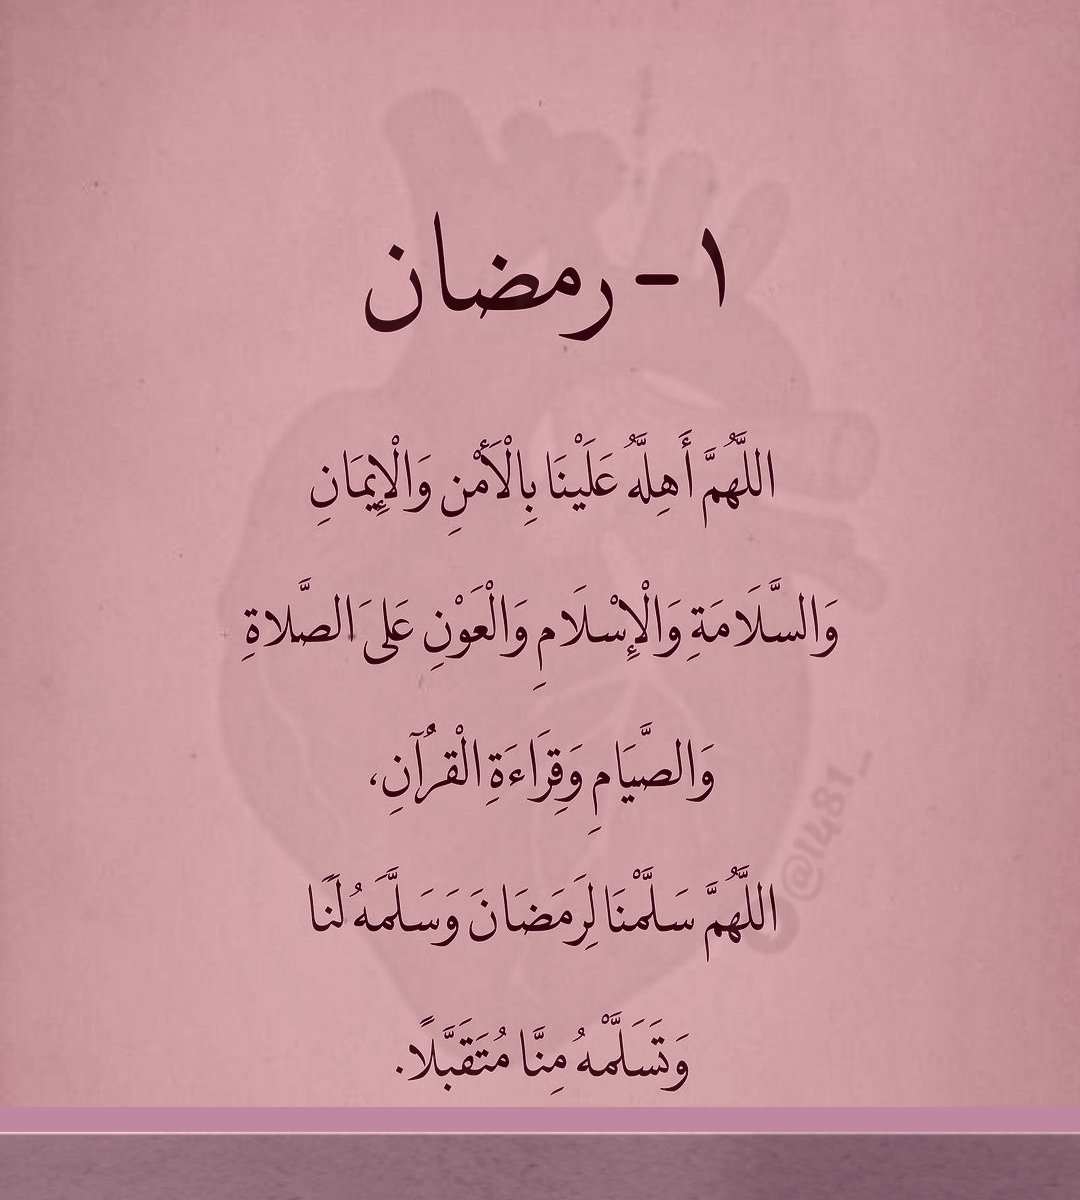 ١- رمضان
اللَّهُمَّ أَهِلَّهُ عَلَيْنَا بِالْأَمْنِ وَالْإِيمَانِ
وَالسَّلَامَةِ وَالْإِسْلَامِ وَالْعَوْنِ عَلىَ الصَّلاةِ
وَالصَّيَامِ وَقِرَاءَةِ الْقرُآنِ،
اللَّهُمَّ سَلَّمْنَا لِرَمَضَانَ وَسَلَّمَهُ لَنَا
وَتَسَلَّمْهُ مِنَّا مُتَقَبَّلًا.
@1481_